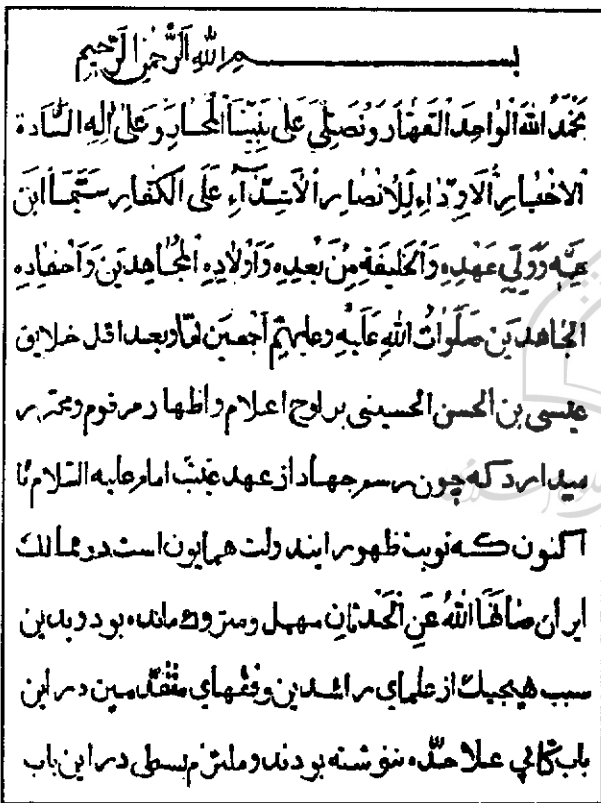 بسم الله الرحمن الرحیم
نَحْمَدُ اللّٰهَ الْوٰاحِدَ الْقَهّٰارَ وَنُصَلّی عَلٰی نَبِیِّنَا الْمُخْتٰارِ وَعَلٰی اٰلِهِ السّٰادَةِ
الْاَخْیٰارِ الْاَوِدّٰاءِ لِلْاَنْصٰارِ الْاَشِدّٰآءِ عَلَی الْکُفّٰارِ سَیَّمَا ابْنَ
عَمِّهِ وَوَلِیِّ عَهْدِهِ وَالْخَلیفَةِ مِنْ بَعْدِهِ وَاَوْلٰادِهِ الْمُجٰاهِدینَ وَاَحْفٰادِهِ
الْجٰاهِدینَ صَلَوٰاتُ اللّٰهِ عَلَیْهِ وعلیهم اَجْمَعینَ امّا وبعد اقل خلایق
عیسی بن الحسن الحسینی بر لوح اعلام واظهار مرقوم ومحرّر
میدارد که چون رسم جهاد از عهد غیبت امام علیه السّلام تا
اکنون که نوبت ظهور ایندولت همایون است در ممالک
ایران صٰانَهَا اللّٰهُ عَنِ الْحَدَثٰانِ مهمل ومتروک مانده بود وبدین
سبب هیچیک از علمای راشدین وفقهای متقدّمین در این
باب کتابی علاحدّه ننوشته بودند وملتزم بسطی در این باب